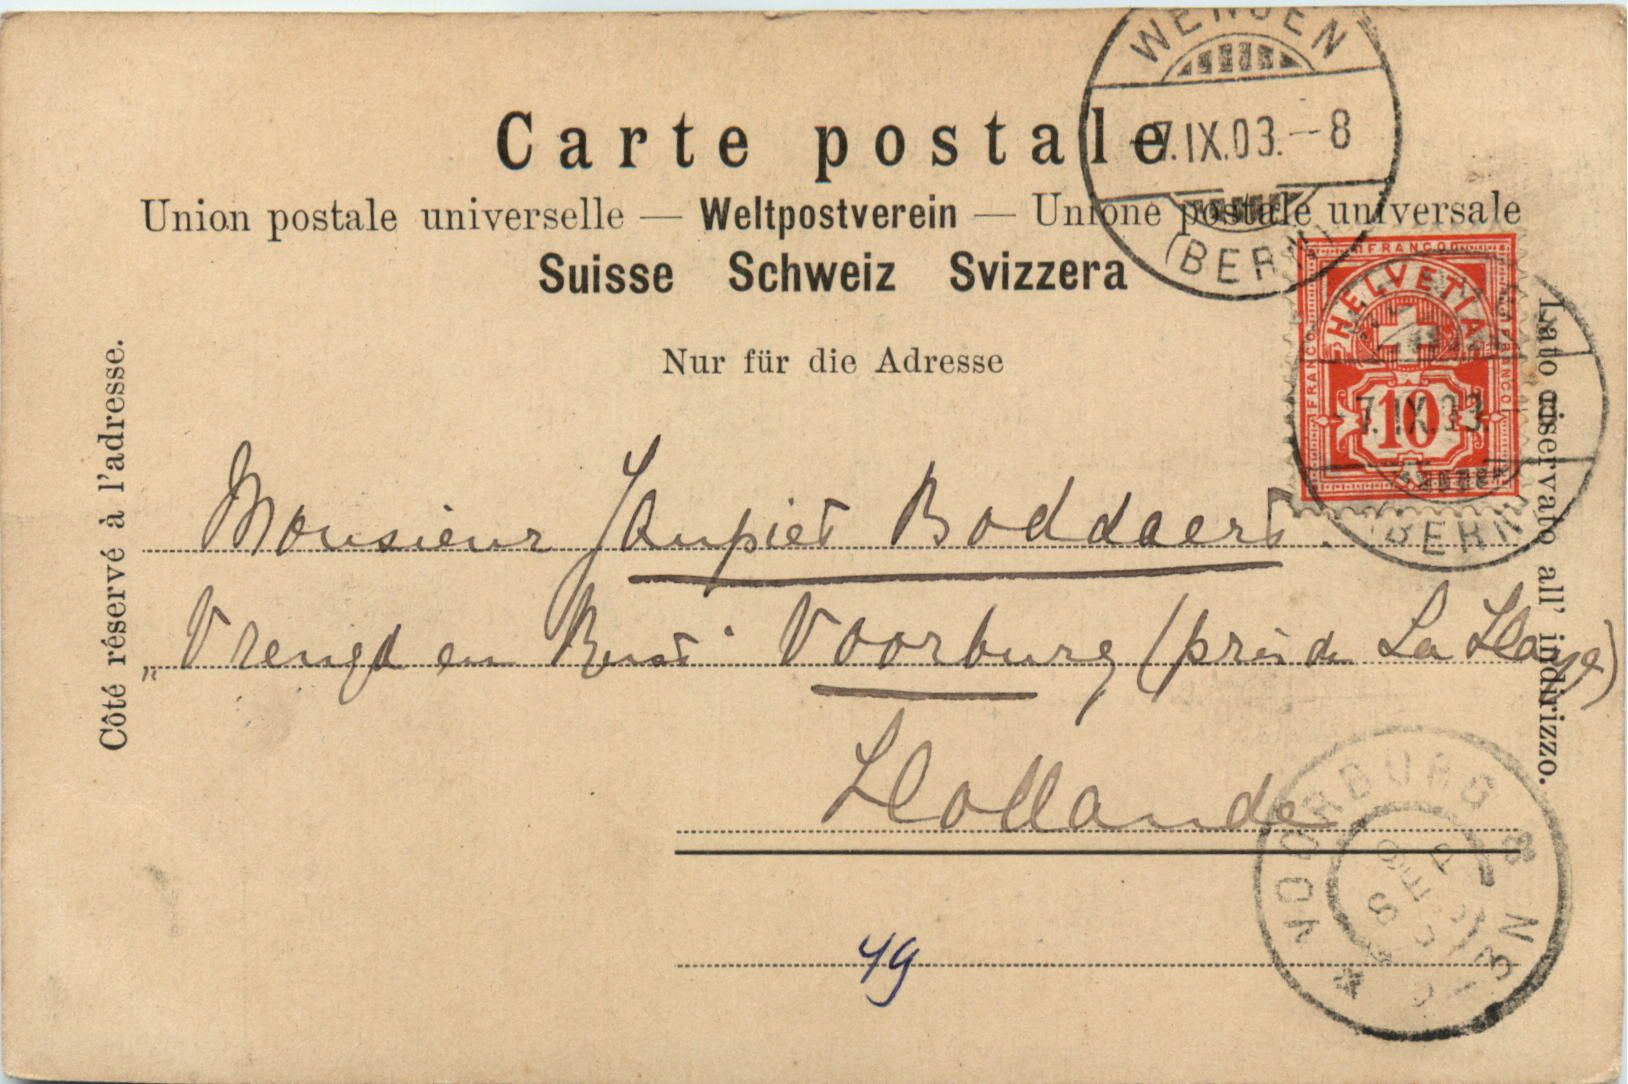 WENGEN
-7.IX.03.-8
(BERN)
Carte postale
Union postale universelle — Weltpostverein — Unione postale universale
Suisse Schweiz Svizzera
Nur für die Adresse
Côté réservé à l'adresse.
Lato riservato all' indirizzo.
FRANCO
FRANCO
FRANCO
HELVETIA
10
7.IX.03.
(BERN)
Monsieur Jaupiet Boddaert.
„Vreugd en Rust" Voorburg (près de La Haye)
Hollande
VOORBURG
SEP
49